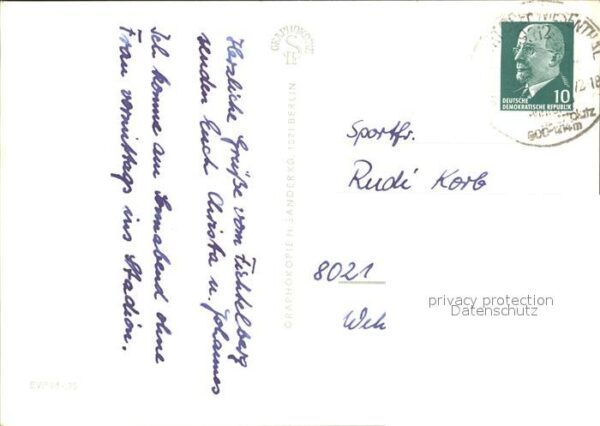 Herzliche Grüße vom Fichtelberg
senden Euch Christa u. Johannes
Ich komme am Sonnabend ohne
Frau vormittags ins Stadion.
GRAPHOKOPIE
GRAPHOKOPIE H. SANDER KG, 1071 BERLIN
DEUTSCHE
DEMOKRATISCHE REPUBLIK
10
Sportfr.
Rudi Korb
8021
privacy protection
Datenschutz